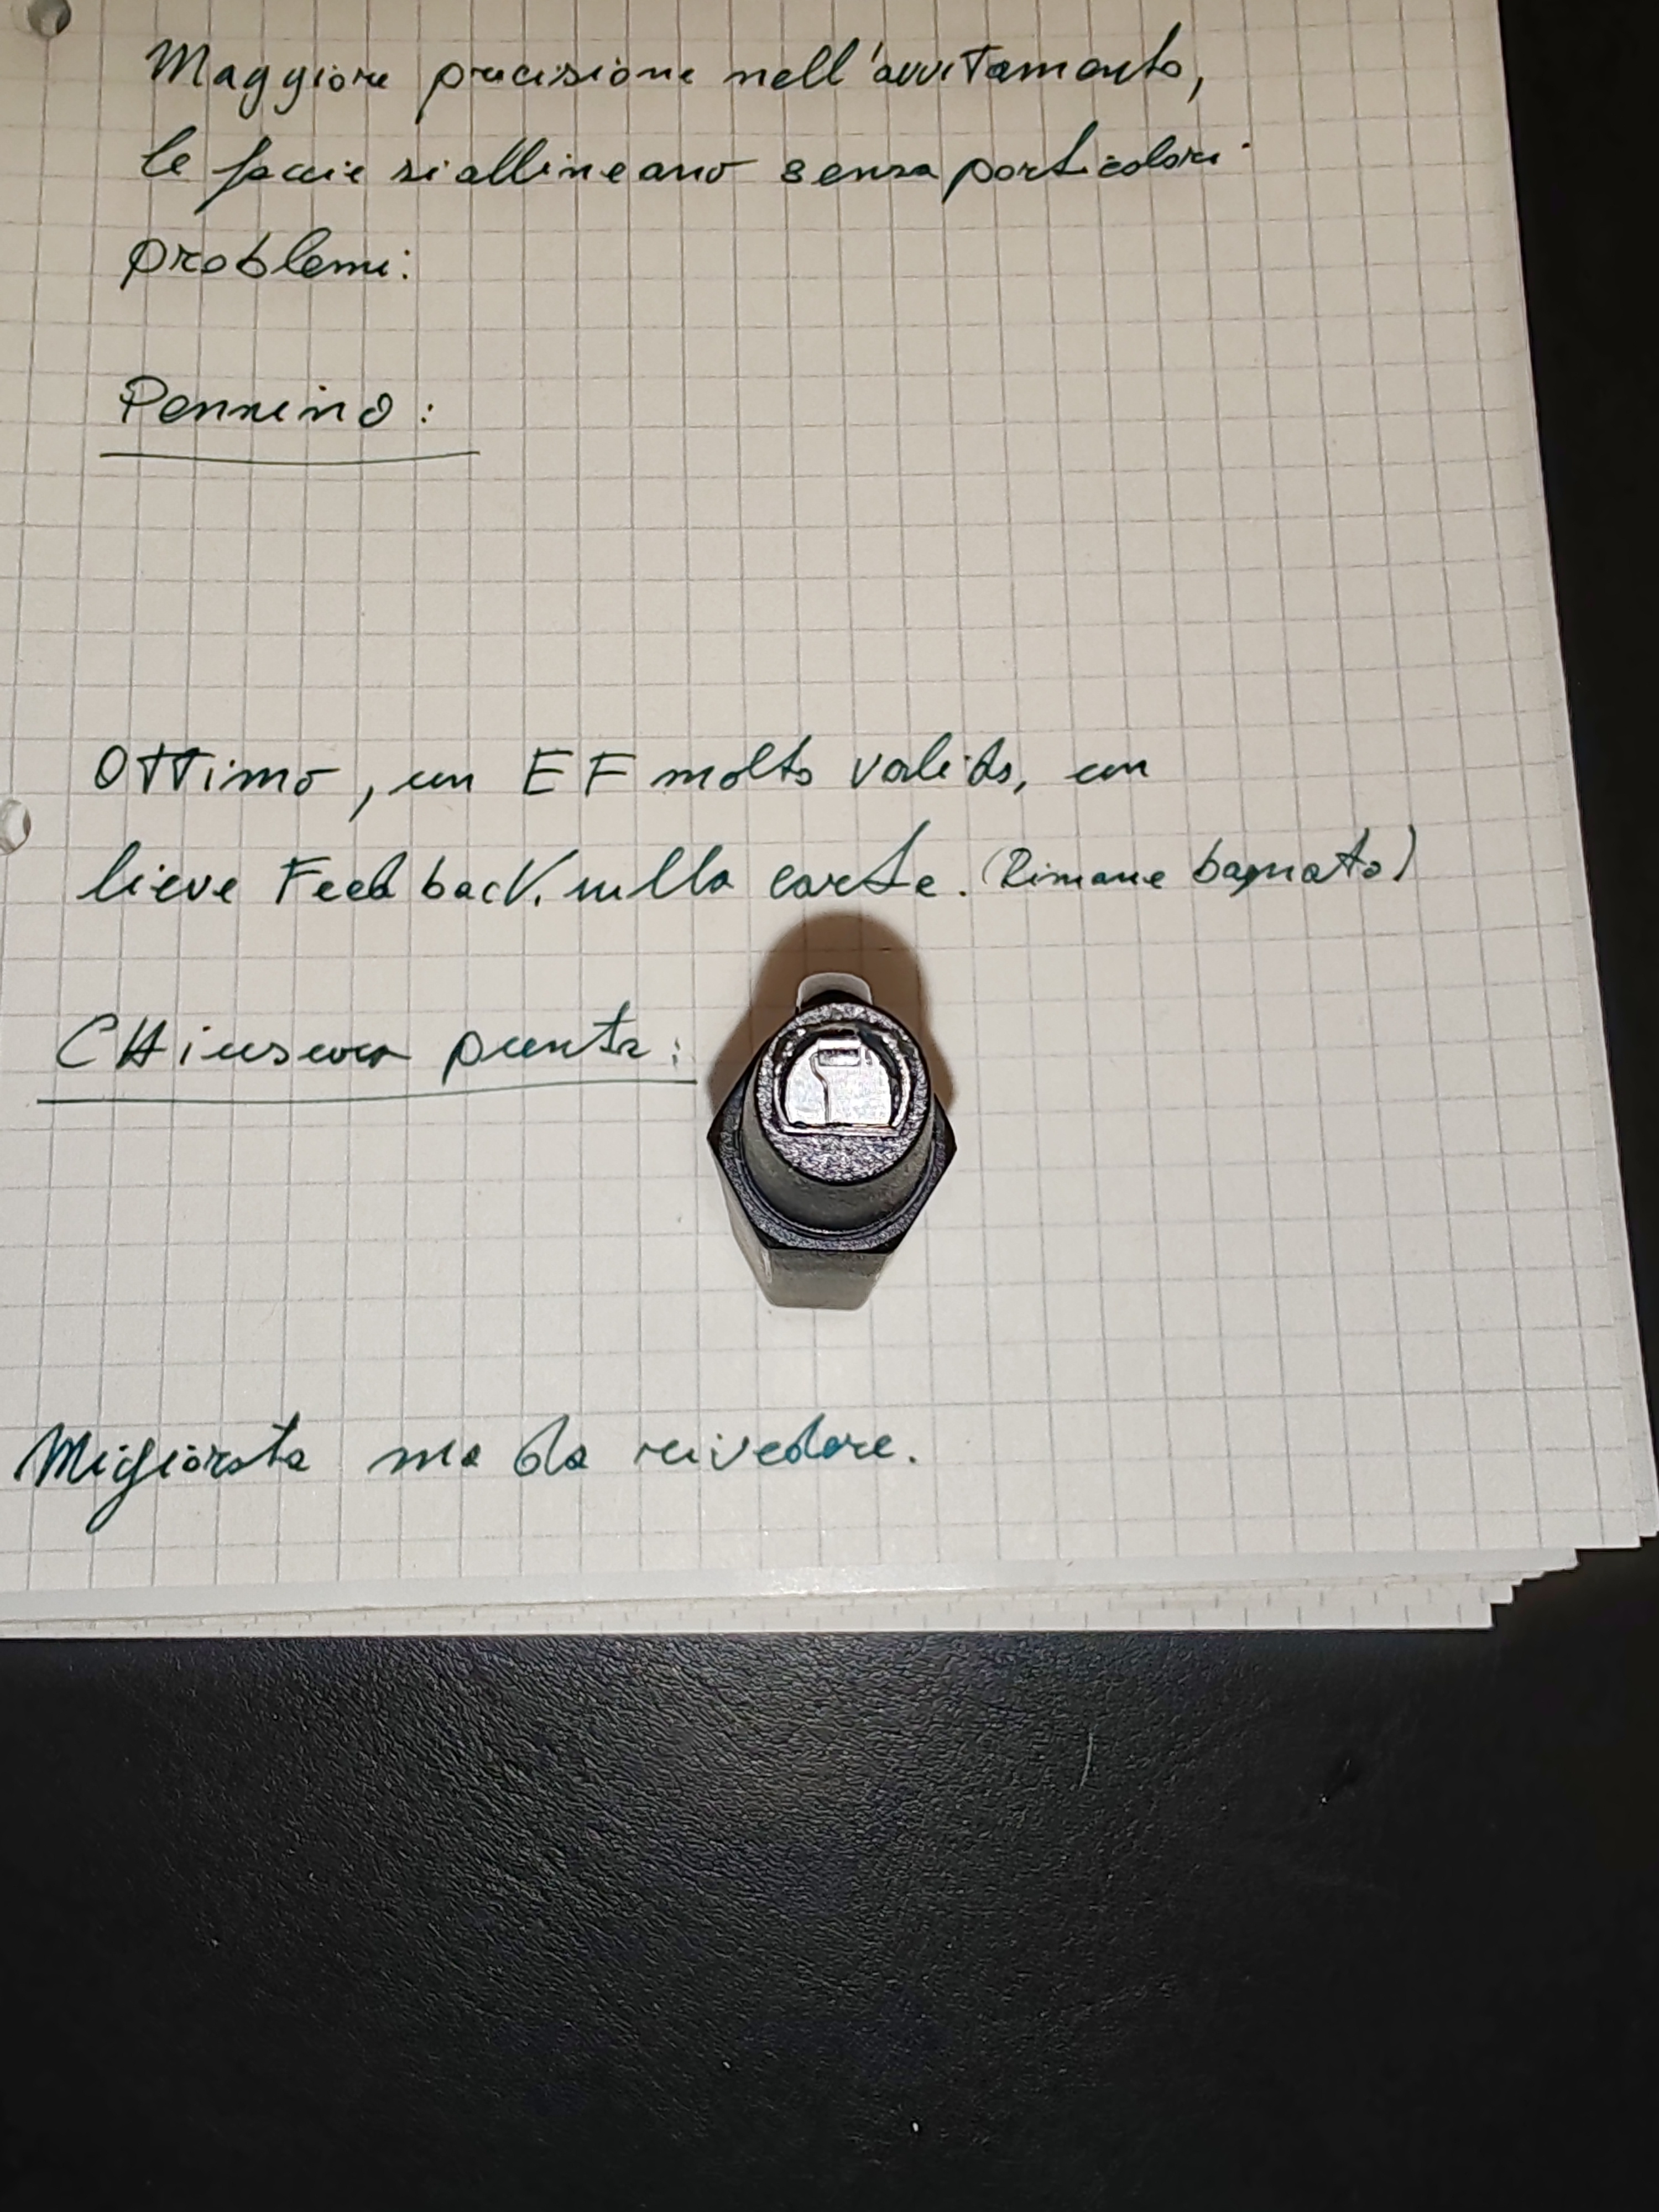 Maggiore precisione nell'avvitamento,
le faccie si allineano senza particolari
problemi:
Pennino:
Ottimo, un EF molto valido, un
lieve Feedback sulla carta. (Rimane bagnato)
CHiusura punta:
Migiorata ma da rivedere.